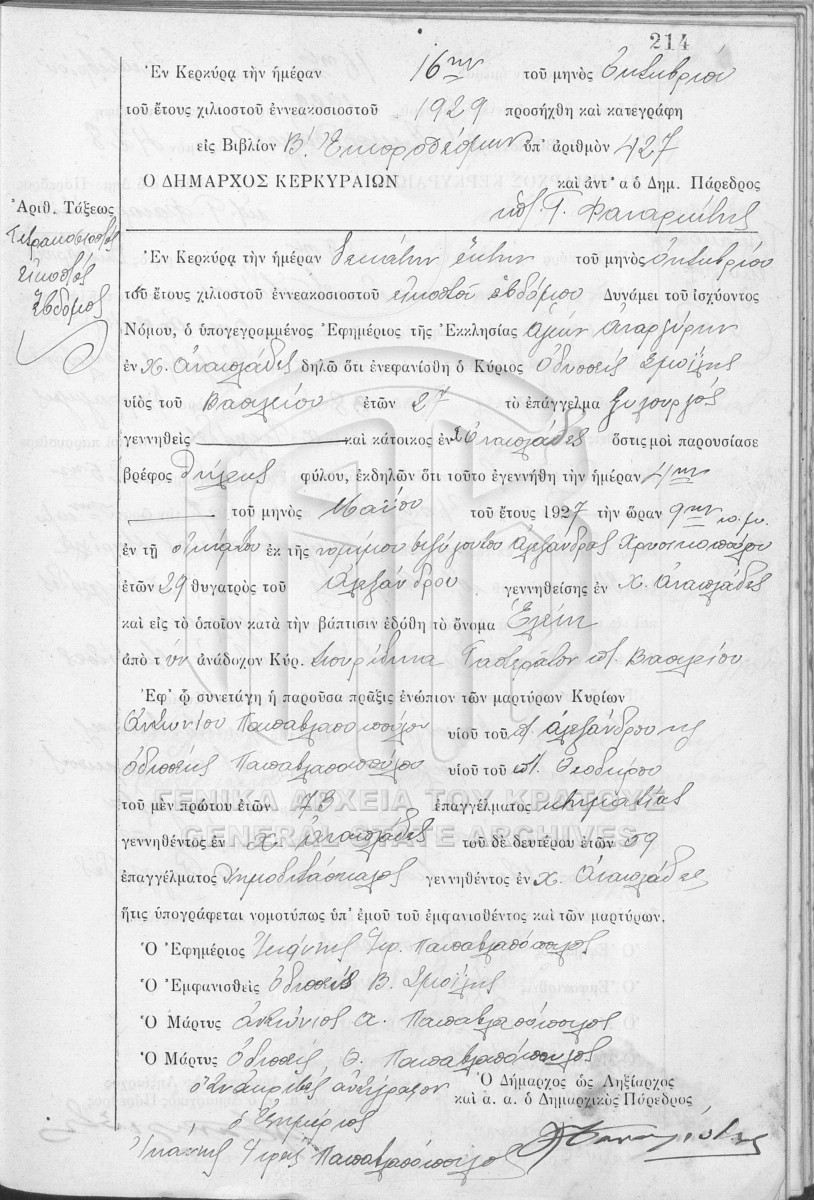 214
Ἐν Κερκύρᾳ τὴν ἡμέραν 16ην τοῦ μηνὸς Ὀκτωβρίου
τοῦ ἔτους χιλιοστοῦ ἐννεακοσιοστοῦ 1929 προσήχθη καὶ κατεγράφη
εἰς Βιβλίον Β. Ἐκπροθέσμων ὑπ' ἀριθμὸν 427
Ο ΔΗΜΑΡΧΟΣ ΚΕΡΚΥΡΑΙΩΝ καὶ ἀντ' α ὁ Δημ. Πάρεδρος
Ἀριθ. Τάξεως
Τετρακοσιοστὸς
εἰκοστὸς
ἕβδομος
Ἐν Κερκύρᾳ τὴν ἡμέραν δεκάτην ἕκτην τοῦ μηνὸς Ὀκτωβρίου
τοῦ ἔτους χιλιοστοῦ ἐννεακοσιοστοῦ εἰκοστοῦ ἑβδόμου Δυνάμει τοῦ ἰσχύοντος
Νόμου, ὁ ὑπογεγραμμένος Ἐφημέριος τῆς Ἐκκλησίας Ἁγίων Ἀναργύρων
ἐν Χ. Ἀναπλάδες δηλῶ ὅτι ἐνεφανίσθη ὁ Κύριος Ὀδυσσεὺς
υἱὸς τοῦ Βασιλείου ἐτῶν 27 τὸ ἐπάγγελμα ξυλουργός
γεννηθεὶς καὶ κάτοικος ἐν Ἀναπλάδες ὅστις μοὶ παρουσίασε
βρέφος θήλεως φύλου, ἐκδηλῶν ὅτι τοῦτο ἐγεννήθη τὴν ἡμέραν 4ην
τοῦ μηνὸς Μαΐου τοῦ ἔτους 1927 τὴν ὥραν 9ην
ἐν τῇ οἰκίᾳ του ἐκ τῆς νομίμου συζύγου του Ἀλεξάνδρας
ἐτῶν 29 θυγατρὸς τοῦ Ἀλεξάνδρου γεννηθείσης ἐν Χ. Ἀναπλάδες
καὶ εἰς τὸ ὁποῖον κατὰ τὴν βάπτισιν ἐδόθη τὸ ὄνομα Ἑλένη
ἀπὸ τ ὴν ἀνάδοχον Κύρ. Βασιλείου
Ἐφ' ᾧ συνετάγη ἡ παροῦσα πρᾶξις ἐνώπιον τῶν μαρτύρων Κυρίων
Ἀντωνίου Παπαβλασοπούλου υἱοῦ τοῦ π. Ἀλεξάνδρου
Ὀδυσσεὺς Παπαβλασοπούλου υἱοῦ τοῦ π. Θεοδώρου
τοῦ μὲν πρώτου ἐτῶν 73 ἐπαγγέλματος κτηματίας
ΓΕΝΙΚΑ ΑΡΧΕΙΑ ΤΟΥ ΚΡΑΤΟΥΣ
GENERAL STATE ARCHIVES
γεννηθέντος ἐν Χ. Ἀναπλάδες τοῦ δὲ δευτέρου ἐτῶν 59
ἐπαγγέλματος Δημοδιδάσκαλος γεννηθέντος ἐν Χ. Ἀναπλάδες
ἥτις ὑπογράφεται νομοτύπως ὑπ' ἐμοῦ τοῦ ἐμφανισθέντος καὶ τῶν μαρτύρων.
Ὁ Ἐφημέριος Ἰωάννης Παπαβλασόπουλος
Ὁ Ἐμφανισθεὶς Ὀδυσσεὺς Β.
Ὁ Μάρτυς Ἀντώνιος Α. Παπαβλασόπουλος
Ὁ Μάρτυς Ὀδυσσεὺς Θ. Παπαβλασόπουλος
Ὁ Δήμαρχος ὡς Ληξίαρχος
καὶ α. α. ὁ Δημαρχικὸς Πάρεδρος
ὁ Ἐφημέριος
Ἰωάννης Ἱερεὺς Παπαβλασόπουλος